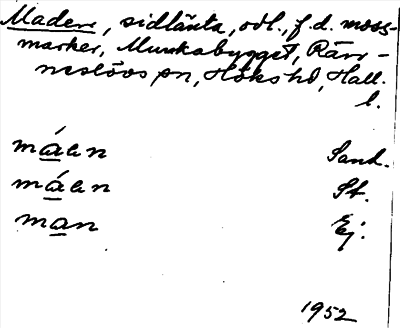 Maden, sidlänta, odl., f.d. moss-
marker, Munkabygget, Ränn-
neslövs sn, Höks hd, Hall.
l.
máan Sand.
máan St.
man Ej.
1952